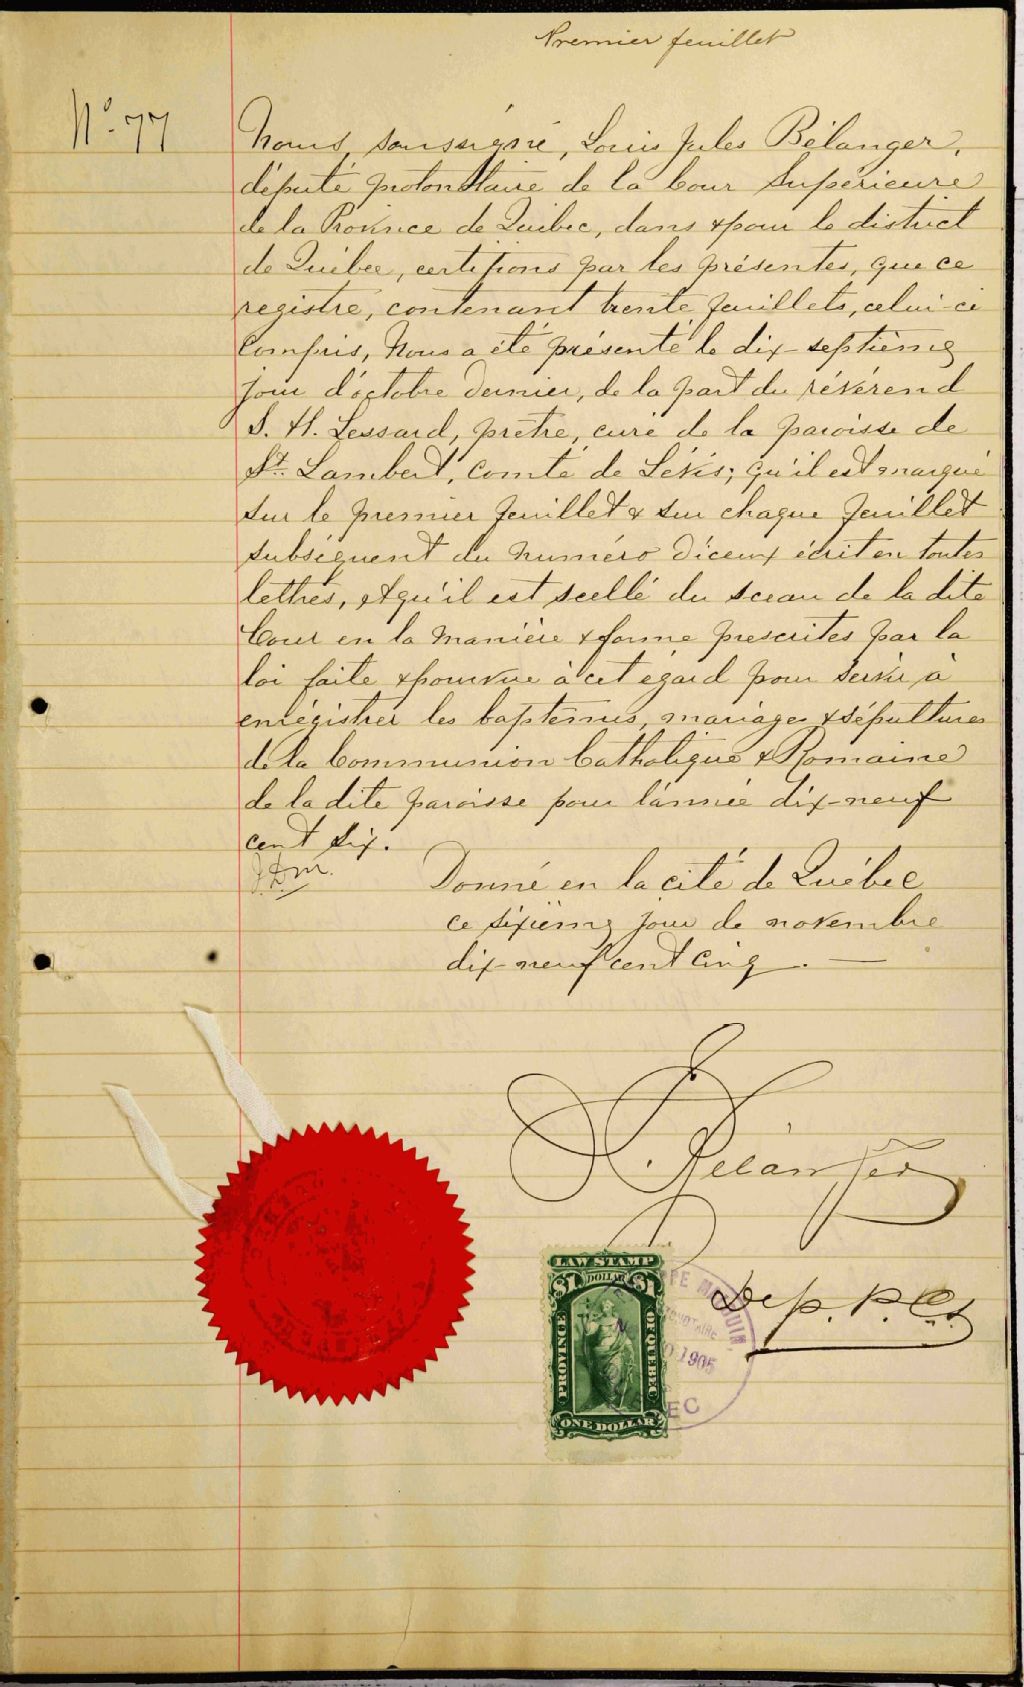 Premier feuillet
No. 77
Nous, soussigné, Louis Jules Bélanger,
député protonotaire de la Cour Supérieure
de la Province de Québec, dans & pour le district
de Québec, certifions par les présentes, que ce
registre, contenant trente feuillets, celui-ci
Compris, Nous a été présenté le dix-septième
jour d'octobre dernier, de la part du révérend
S. H. Lessard, prêtre, curé de la paroisse de
St. Lambert, Comté de Lévis; qu'il est marqué
sur le premier feuillet & sur chaque feuillet
subséquent du numéro d'iceux écrit en toutes
lettres, et qu'il est scellé du sceau de la dite
Cour en la manière & forme prescrites par la
loi faite & pourvue à cet égard pour servir à
enrégistrer les baptêmes, mariages & sépultures
de la Communion Catholique & Romaine
de la dite paroisse pour l'année dix-neuf
cent six.
Donné en la cité de Québec
ce sixième jour de novembre
dix-neuf cent cinq. —
Bélanger
Dep. P.C.S.
LAW STAMP
$1 DOLLAR $1
PROVINCE OF QUEBEC
ONE DOLLAR
1905